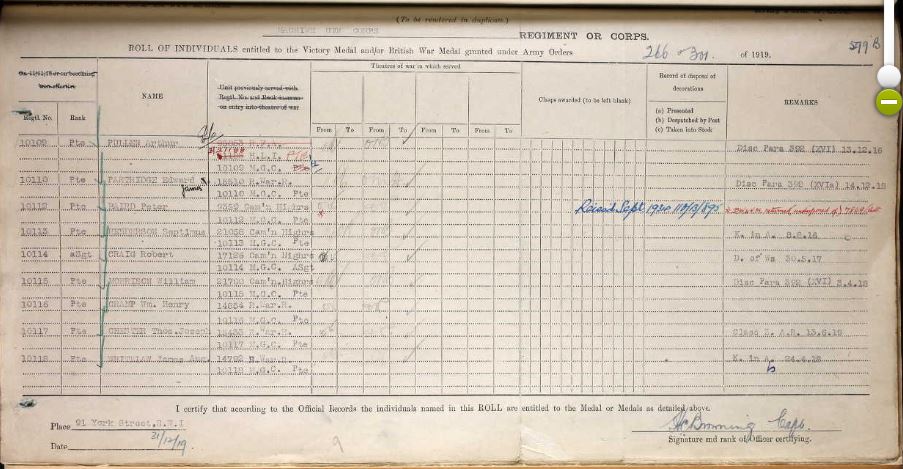 (To be rendered in duplicate.)
MACHINE GUN CORPS REGIMENT OR CORPS.
ROLL OF INDIVIDUALS entitled to the Victory Medal and/or British War Medal granted under Army Orders 266 of 301. of 1919. 579 B
Theatres of war in which served
Record of disposal of decorations
NAME
Unit previously served with Regtl. No. and Rank
on entry into theatre of war
Clasps awarded (to be left blank)
REMARKS
(a) Presented
(b) Despatched by Post
(c) Taken into Stock
Regtl. No. Rank
From To From To From To From To
10109 Pte PULLEN Arthur
Disc Para 392 (XVI) 13.12.18
10109 M.G.C. Pte
10110 Pte PARTRIDGE Edward James R.War.R. Disc Para 392 (XVIa) 14.12.18
10110 M.G.C. Pte
10112 Pte BAIRD Peter Cam'n Highrs Reissued Sept 1920
10112 M.G.C. Pte
10113 Pte HENDERSON Septimus 21058 Cam'n Highrs K. in A. 8.8.16
10113 M.G.C. Pte
10114 aSgt CRAIG Robert 17126 Cam'n Highrs D. of Ws 30.5.17
10114 M.G.C. ASgt
10115 Pte MORRISON William 21700 Cam'n Highrs Disc Para 392 (XVI) 3.4.18
10115 M.G.C. Pte
10116 Pte CRAMP Wm. Henry 14654 R.War.R.
10116 M.G.C. Pte
10117 Pte CHESTER Thos.Joseph R.War.R. Class Z. A.R. 13.6.19
10117 M.G.C. Pte
10118 Pte WHITELAW James R.War.R. K. in A. 24.4.18
10118 M.G.C. Pte
I certify that according to the Official Records the individuals named in this ROLL are entitled to the Medal or Medals as detailed above.
Place 91 York Street.S.W.I Browning Capt.
Date 31/12/19 Signature and rank of Officer certifying.
9